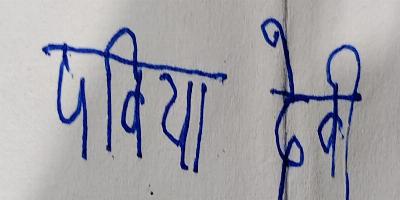 पविया देवी